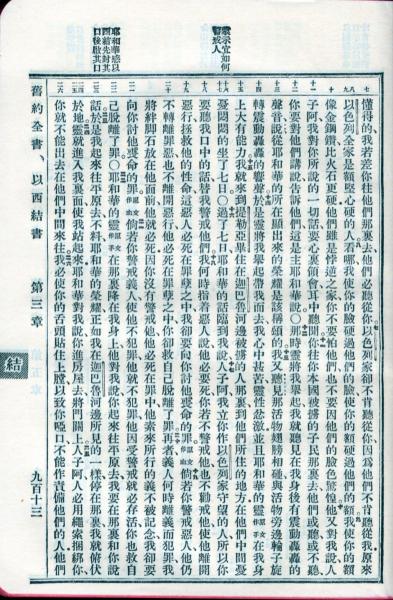 宜如何
警戒人
耶和華
西結先封其
口後啟其口
懂得的我若差你往他們那裏去他們必聽從你以色列家卻不肯聽從你因為他們不肯聽從我原來
以色列全家是額堅心硬的人看哪我使你的臉硬過他們的臉使你的額硬過他們的額我使你的額
像金鋼鑽比火石更硬他們雖是悖逆之家你不要怕他們也不要因他們的臉色驚惶他又對我說人
子阿我對你所說的一切話要心裏領會耳中聽聞你往你本國被擄的子民那裏去他們或聽或不聽
你要對他們講說告訴他們這是主耶和華說○那時靈將我舉起我就聽見在我身後有震動轟轟的
聲音說從耶和華的所在顯出來的榮耀是該稱頌的我又聽見那活物翅膀相碰與活物旁邊輪子旋
轉震動轟轟的響聲於是靈將我舉起帶我而去我心中甚苦靈性忿激並且耶和華的靈在我身
上大有能力我就來到提勒畢畢住在迦巴魯河邊被擄的人那裏到他們所住的地方在他們中間憂
憂悶悶的坐了七日○過了七日耶和華的話臨到我說人子阿我立你作以色列家守望的人所以你
要聽我口中的話替我警戒他們我何時指着惡人說他必要死你若不警戒他也不勸戒他使他離開
惡行拯救他的性命這惡人必死在罪孽之中我卻要向你討他喪命的罪倘若你警戒惡人他仍
不轉離罪惡也不離開惡行他必死在罪孽之中你卻救自己脫離了罪再者義人何時離義而犯罪我
將絆脚石放在他面前他就必死因你沒有警戒他他必死在罪中他素來所行的義不被記念我卻要
向你討他喪命的罪倘若你警戒義人使他不犯罪他就不犯罪他因受警戒就必存活你也救自
己脫離了罪○耶和華的靈在那裏降在我身上他對我說你起來往平原去我要在那裏和你說
話於是我起來往平原去不料耶和華的榮耀正如我在迦巴魯河邊所見的一樣停在那裏我就俯伏
於地靈就進入我裏面使我站起來耶和華對我說你進房屋去將門關上人子阿人必用繩索捆綁你
你就不能出去在他們中間來往我必使你的舌頭貼住上膛以致你啞口不能作責備他們的人他們
舊約全書、以西結書　第三章
結
九百十三